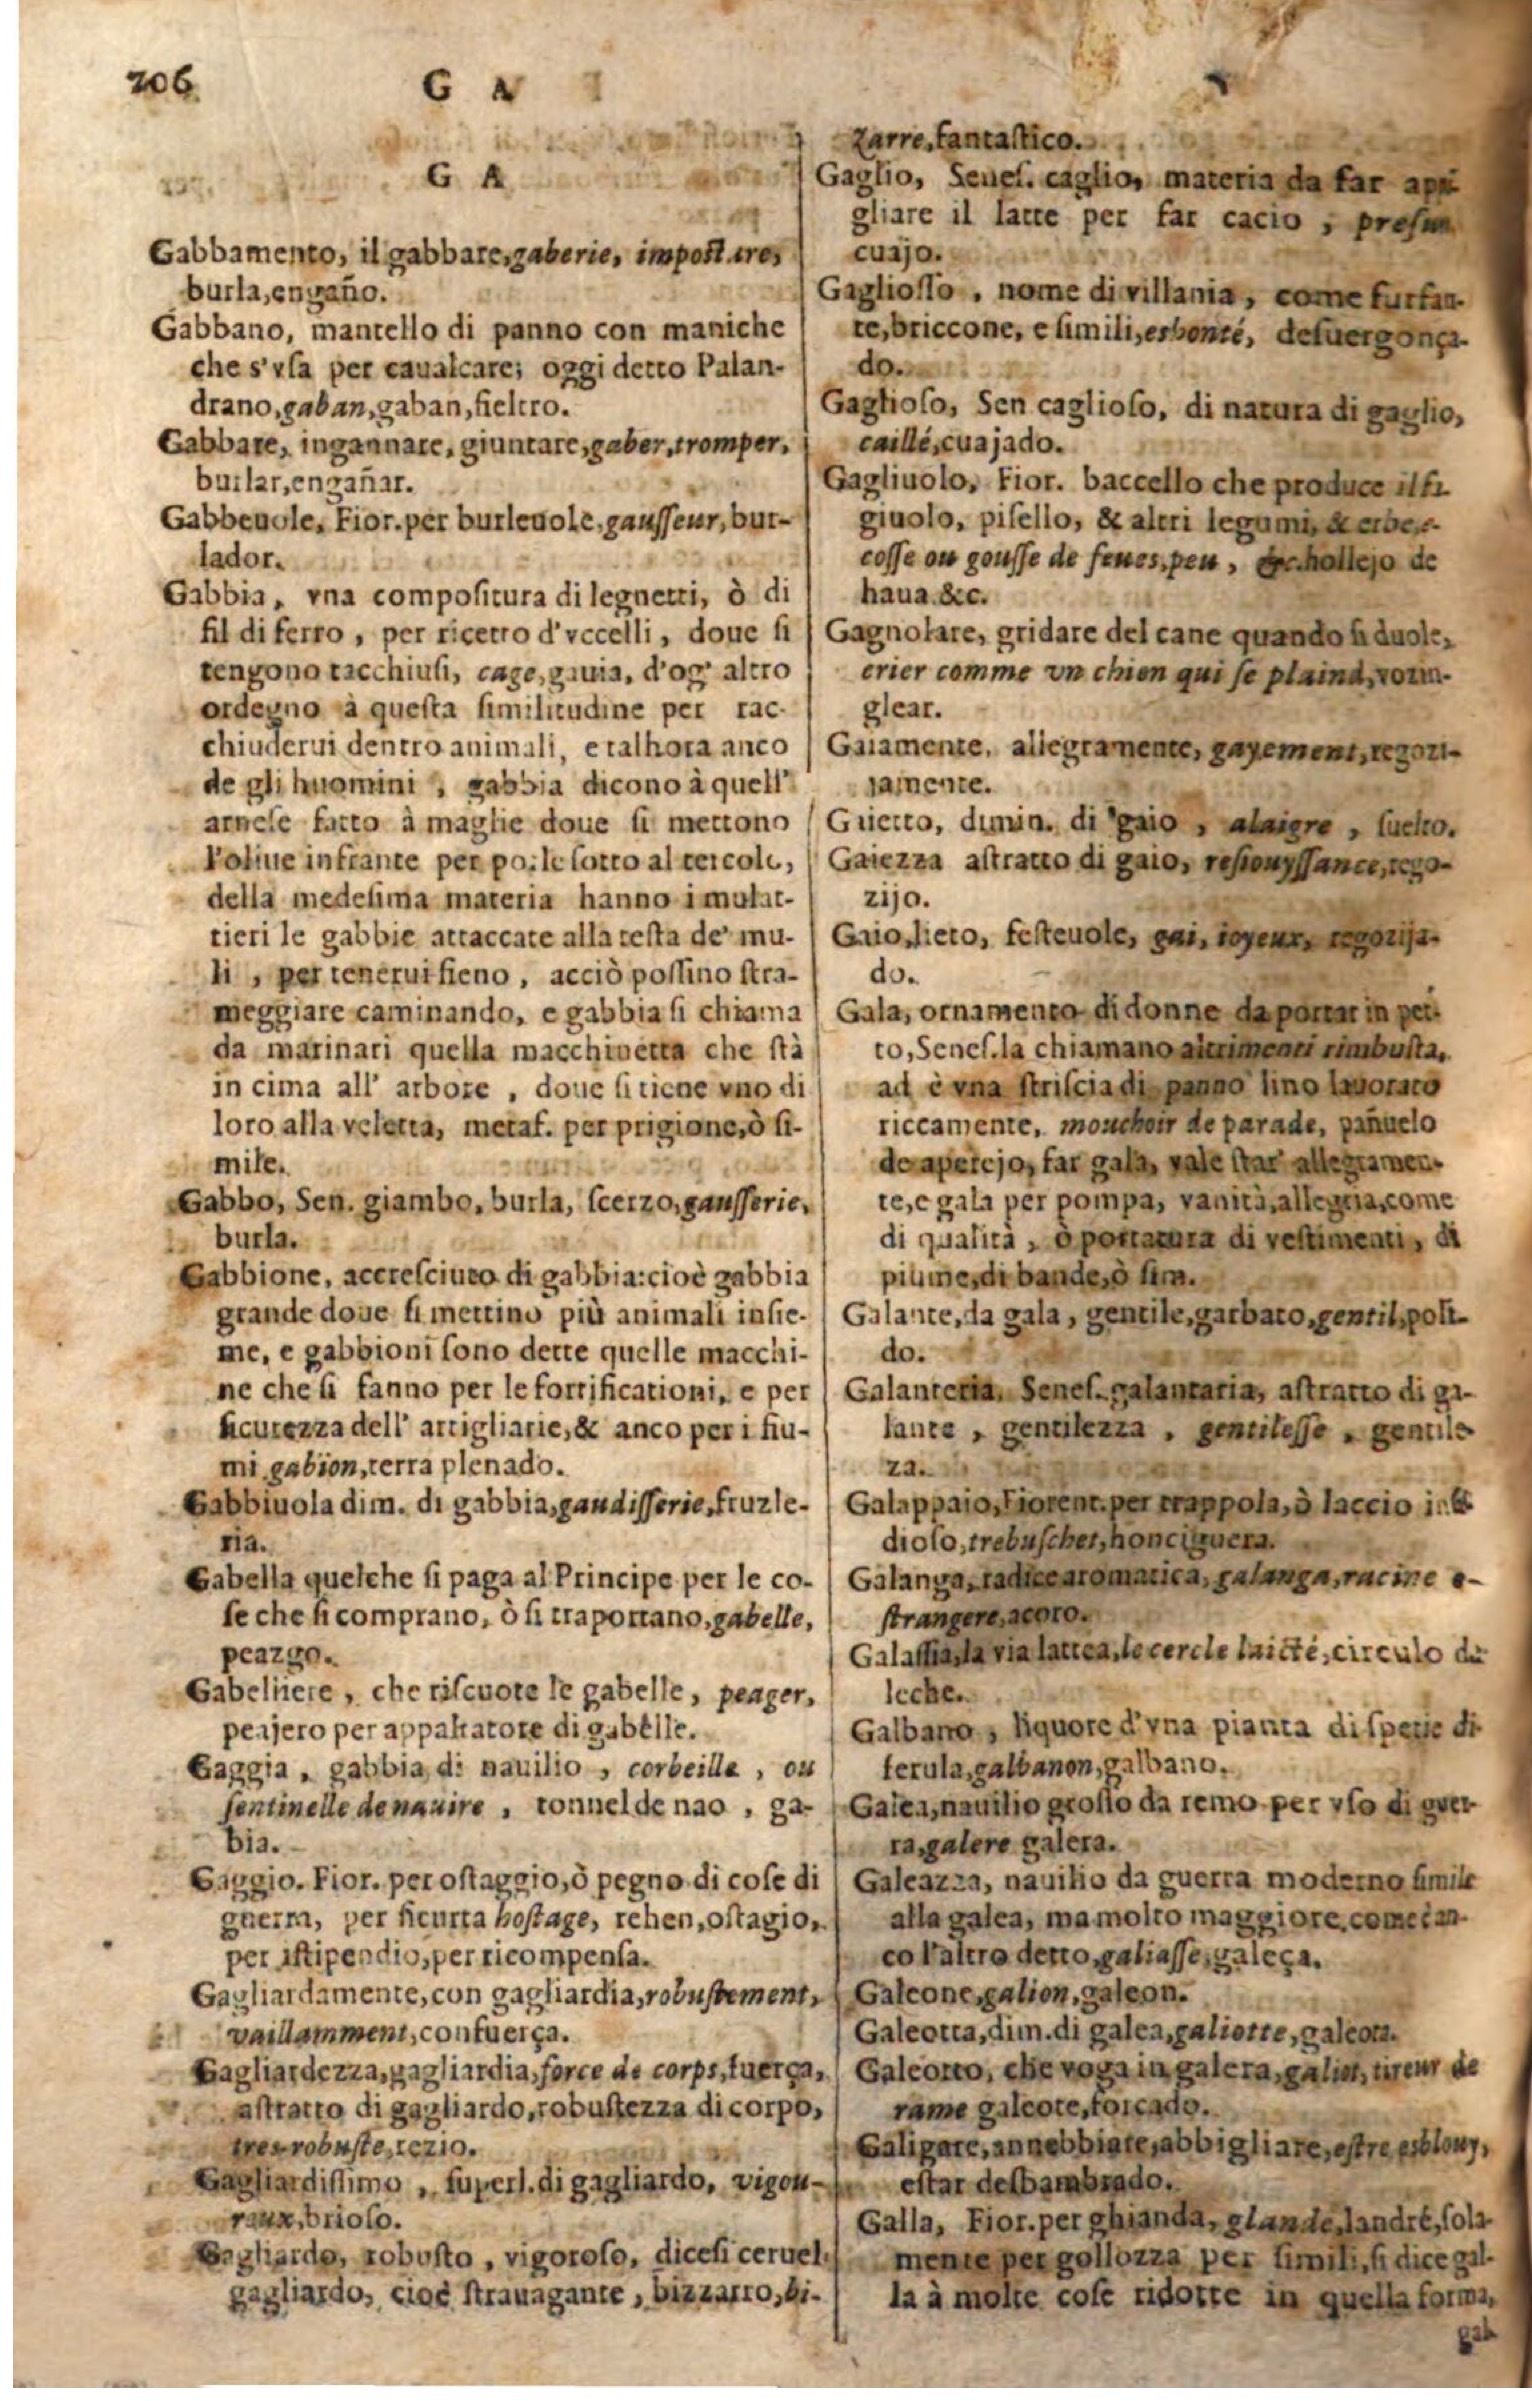 206
G A
G A
Gabbamento, il gabbare, gaberie, imposture,
burla, engaño.
Gabbano, mantello di panno con maniche
che s'vsa per caualcare; oggi detto Palan-
drano, gaban, gaban, fieltro.
Gabbare, ingannare, giuntare, gaber, tromper,
burlar, engañar.
Gabbeuole, Fior. per burleuole, gausseur, bur-
lador.
Gabbia, vna compositura di legnetti, ò di
fil di ferro, per ricetto d'vccelli, doue si
tengono racchiusi, cage, gauia, d'og' altro
ordegno à questa similitudine per rac-
chiuderui dentro animali, e talhora anco
de gli huomini, gabbia dicono à quell'
arnese fatto à maglie doue si mettono
l'oliue infrante per porle sotto al torcolo,
della medesima materia hanno i mulat-
tieri le gabbie attaccate alla testa de' mu-
li, per tenerui fieno, acciò possino stra-
meggiare caminando, e gabbia si chiama
da marinari quella macchinetta che stà
in cima all' arbore, doue si tiene vno di
loro alla veletta, metaf. per prigione, ò si-
mile.
Gabbo, Sen. giambo, burla, scerzo, gausserie,
burla.
Gabbione, accresciuto di gabbia: cioè gabbia
grande doue si mettino più animali insie-
me, e gabbioni sono dette quelle macchi-
ne che si fanno per le fortificationi, e per
sicurezza dell' artigliarie, & anco per i fiu-
mi gabion, terra plenado.
Gabbiuola dim. di gabbia, gaudisserie, fruzle-
ria.
Gabella quelche si paga al Principe per le co-
se che si comprano, ò si traportano, gabelle,
peazgo.
Gabelliere, che riscuote le gabelle, peager,
peajero per appaltatore di gabelle.
Gaggia, gabbia di nauilio, corbeille, ou
sentinelle de nauire, tonnel de nao, ga-
bia.
Gaggio. Fior. per ostaggio, ò pegno di cose di
guerra, per sicurta hostage, rehen, ostagio,
per istipendio, per ricompensa.
Gagliardamente, con gagliardia, robustement,
vaillamment, con fuerça.
Gagliardezza, gagliardia, force de corps, fuerça,
astratto di gagliardo, robustezza di corpo,
tres robuste, rezio.
Gagliardissimo, superl. di gagliardo, vigou-
reux, brioso.
Gagliardo, robusto, vigoroso, dicesi ceruel
gagliardo, cioè strauagante, bizzarro, bi-
zarre, fantastico.
Gaglio, Senes. caglio, materia da far appi
gliare il latte per far cacio, presun
cuajo.
Gagliosso, nome di villania, come furfan-
te, briccone, e simili, eshonté, desuergonça-
do.
Gaglioso, Sen caglioso, di natura di gaglio,
caillé, cuajado.
Gagliuolo, Fior. baccello che produce il fa-
giuolo, pisello, & altri legumi, & erbe, e-
cosse ou gousse de feues, peu, &c. hollejo de
haua &c.
Gagnolare, gridare del cane quando si duole,
crier comme vn chien qui se plaind,
glear.
Gaiamente, allegramente, gayement, regozi-
jamente.
Gaietto, dimin. di gaio, alaigre, suelto.
Gaiezza astratto di gaio, resiouyssance, rego-
zijo.
Gaio, lieto, festeuole, gai, ioyeux, regozija-
do.
Gala, ornamento di donne da portar in pet-
to, Senes. la chiamano altrimenti rimbusta,
ad è vna striscia di panno lino lauorato
riccamente, mouchoir de parade, pañuelo
de aperejo, far gala, vale star allegramen-
te, e gala per pompa, vanità, allegria, come
di qualità, ò portatura di vestimenti, di
piume, di bande, ò sim.
Galante, da gala, gentile, garbato, gentil, poli-
do.
Galanteria, Senes. galantaria, astratto di ga-
lante, gentilezza, gentilesse, gentile
za.
Galappaio, Fiorent. per trappola, ò laccio insi
dioso, trebuschet, honciguera.
Galanga, radice aromatica, galanga, racine e-
strangere, acoro.
Galassia, la via lattea, le cercle laicté, circulo de
leche.
Galbano, liquore d'vna pianta di spetie di
ferula, galbanon, galbano.
Galea, nauilio grosso da remo per vso di guer-
ra, galere galera.
Galeazza, nauilio da guerra moderno simile
alla galea, ma molto maggiore, come an-
co l'altro detto, galiasse, galeça.
Galeone, galion, galeon.
Galeotta, dim. di galea, galiotte, galeota.
Galeotto, che voga in galera, galiot, tireur de
rame galeote, forcado.
Galigare, annebbiare, abbigliare, estre esblouy,
estar desbambrado.
Galla, Fior. per ghianda, glande, landré, sola-
mente per gollozza per simili, si dice gal-
la à molte cose ridotte in quella forma,
gal-